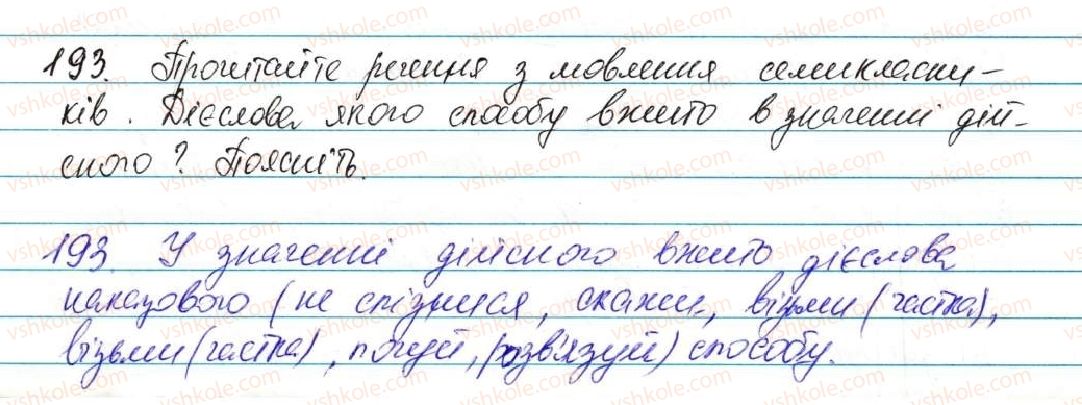 193. Прочитайте речення з мовлення семикласни-
ків. Дієслова якого способу вжито в значенні дій-
сного? Поясніть.
193. У значенні дійсного вжито дієслова
наказового (не спізнися, скажи, візьми (частка),
візьми (частка), почуй, розв'язуй) способу.